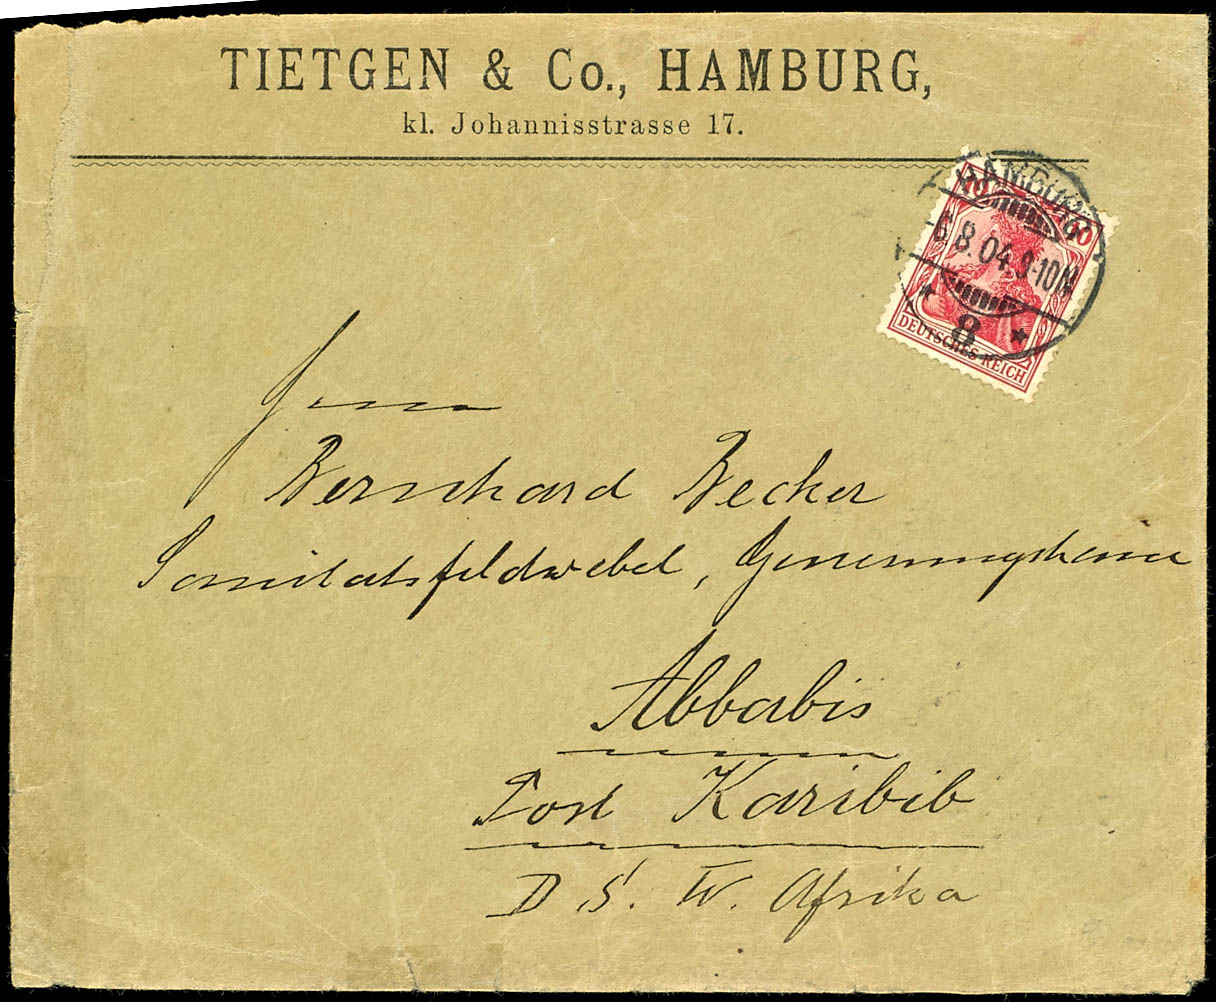 TIETGEN & Co., HAMBURG,
kl. Johannisstrasse 17.
HAMBURG
-6.8.04.9-10N
* 8 *
10 10
DEUTSCHES REICH
Herrn
Bernhard Becker
Sanitatsfeldwebel, Genesungsheim
Abbabis
Post Karibib
D. S. W. Afrika